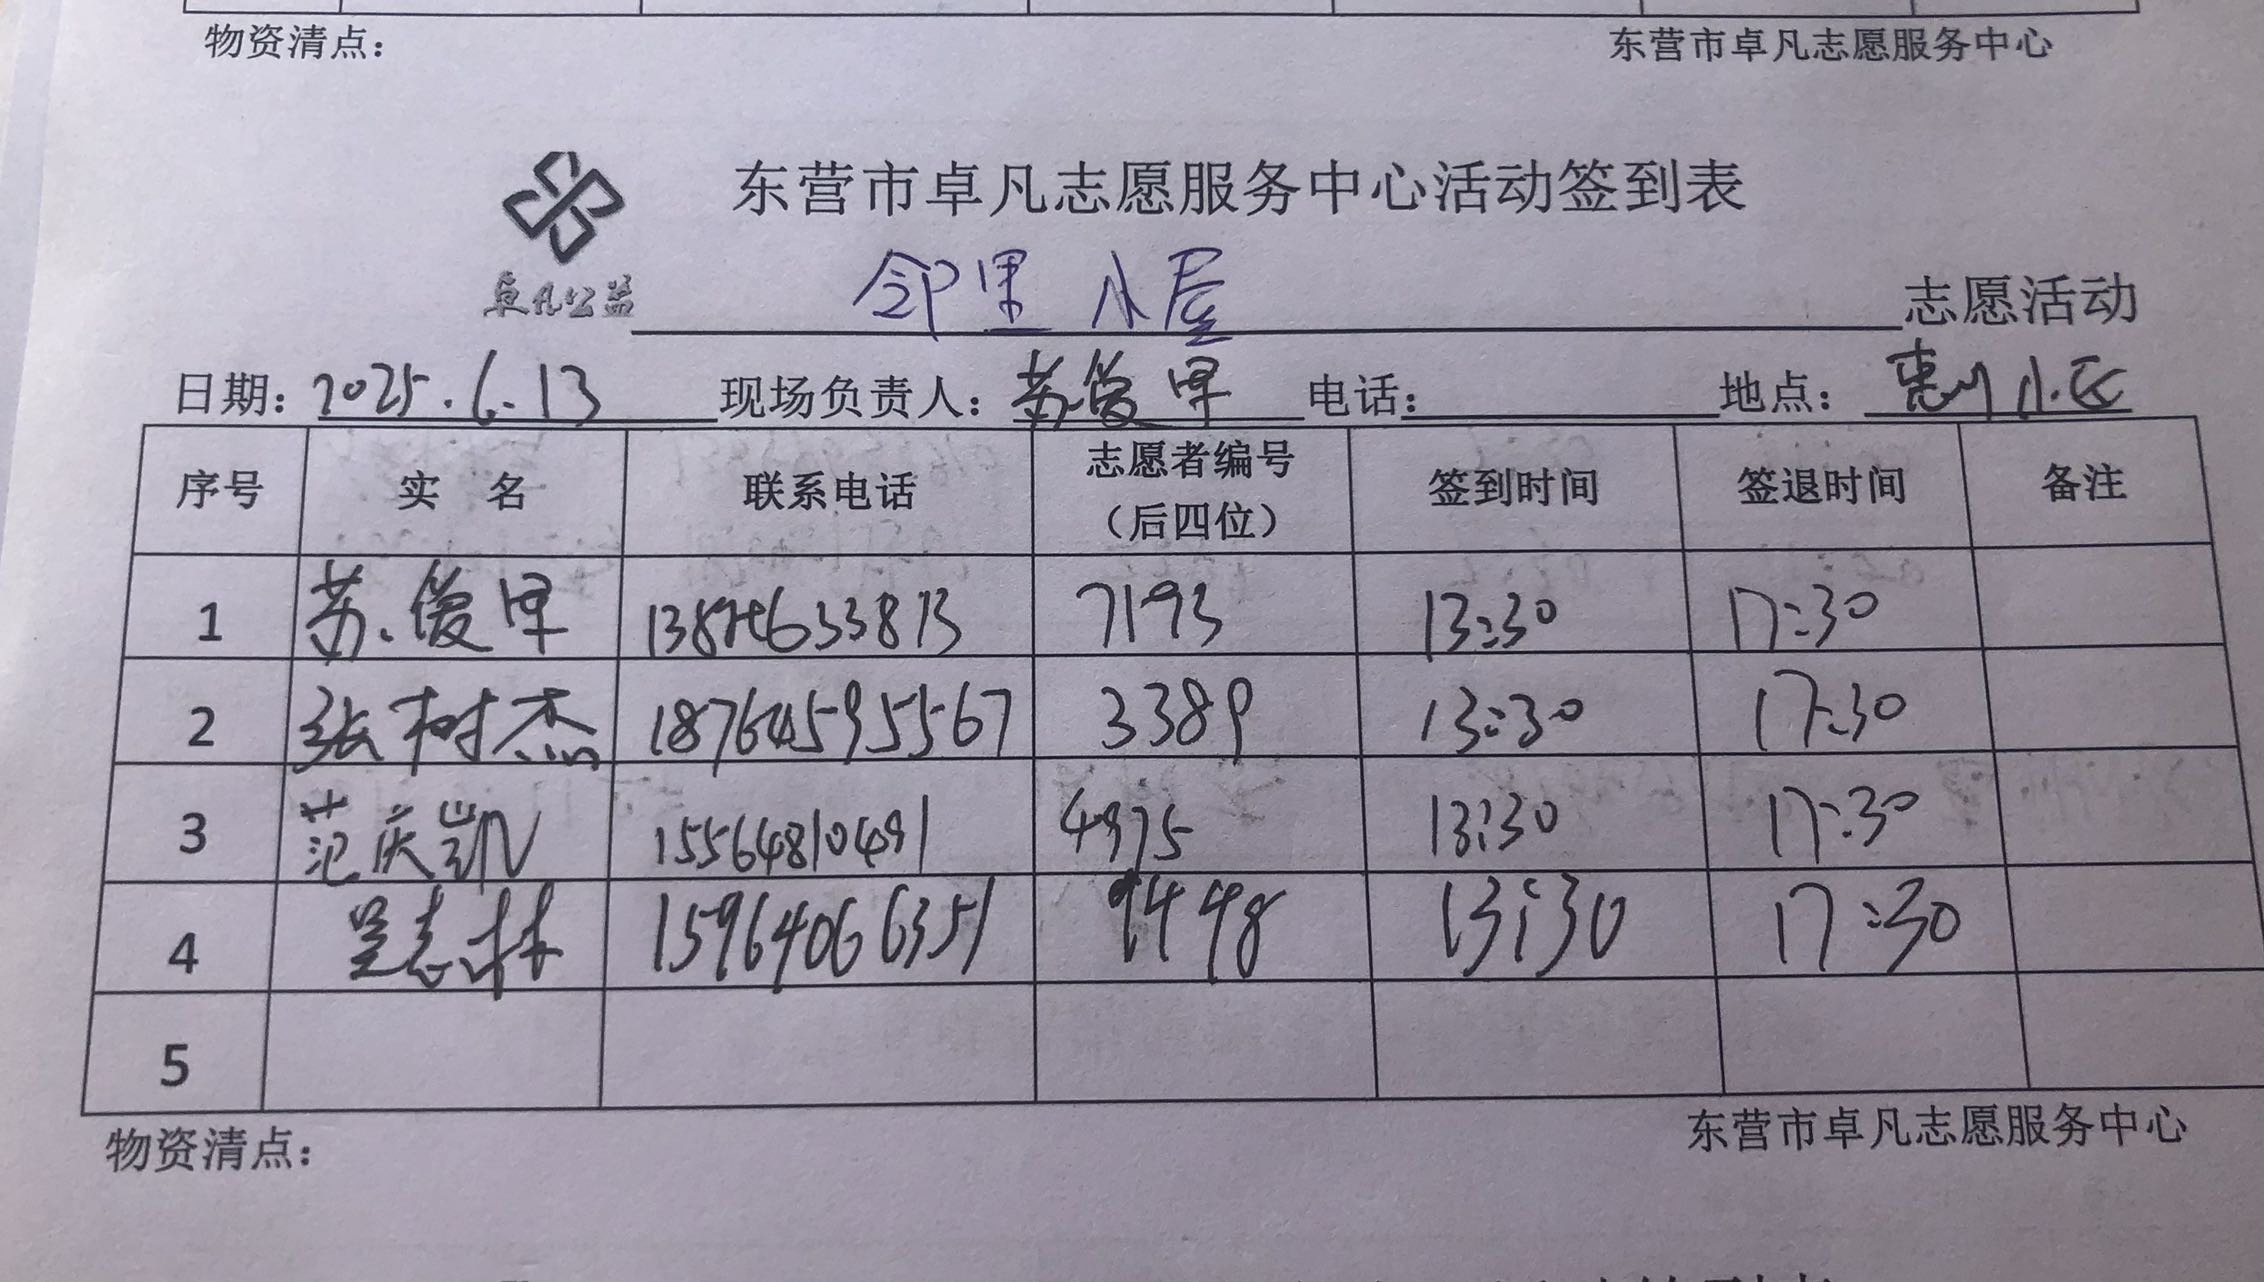 物资清点： 东营市卓凡志愿服务中心
东营市卓凡志愿服务中心活动签到表
卓凡公益
邻里小屋 志愿活动
日期：2025.6.13 现场负责人：苏俊军 电话： 地点：惠州小区
序号 实 名 联系电话 志愿者编号（后四位） 签到时间 签退时间 备注
1 苏俊军 7193 13:30 17:30
2 张树杰 18764595567 3389 13:30 17:30
3 范庆凯 15564810491 4975 13:30 17:30
4 吴志林 15964066351 9448 13:30 17:30
5
物资清点： 东营市卓凡志愿服务中心